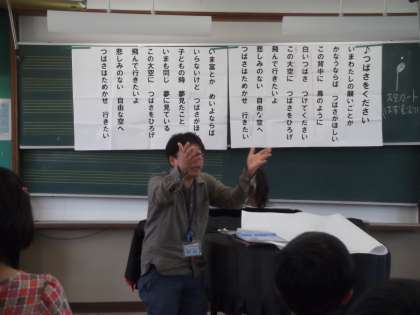 ♪つばさをください
いまわたしの願いごとが
かなうならば　つばさがほしい
この背中に　鳥のように
白いつばさ　つけてください
この大空に　つばさをひろげ
飛んで行きたいよ
悲しみのない　自由な空へ
つばさはためかせ　行きたい
いま富とか　めいよならば
いらないけど　つばさがほ
子どもの時　夢見たこと
いまも同じ　夢に見ている
この大空に　つばさをひろげ
飛んで行きたいよ
悲しみのない　自由な空へ
つばさはためかせ　行きたい